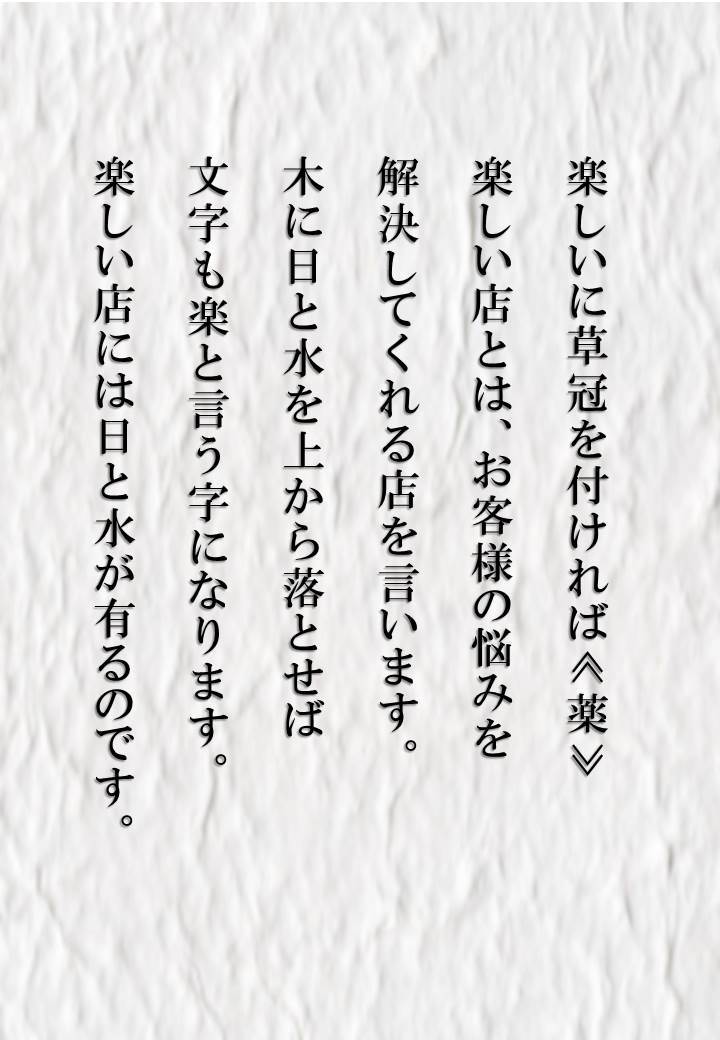 楽しいに草冠を付ければ《薬》
楽しい店とは、お客様の悩みを
解決してくれる店を言います。
木に日と水を上から落とせば
文字も楽と言う字になります。
楽しい店には日と水が有るのです。